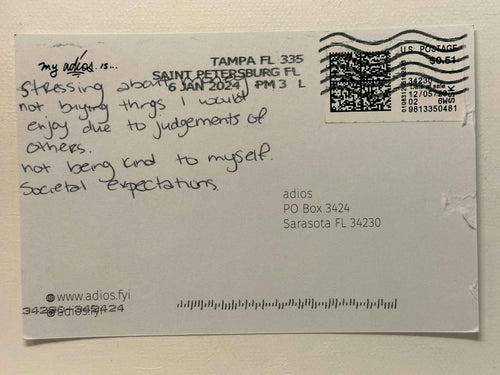 my adios is...
TAMPA FL 335
SAINT PETERSBURG FL
6 JAN 2024 PM 3 L
U.S. POSTAGE
$0.51
Stressing about money
not buying things I would
enjoy due to judgements of
others.
not being kind to myself.
Societal expectations.
34230
Date of sale
12/05/
02
6W
SSK
9813350481
adios
PO Box 3424
Sarasota FL 34230
www.adios.fyi
@adios.fyi
34230-342424